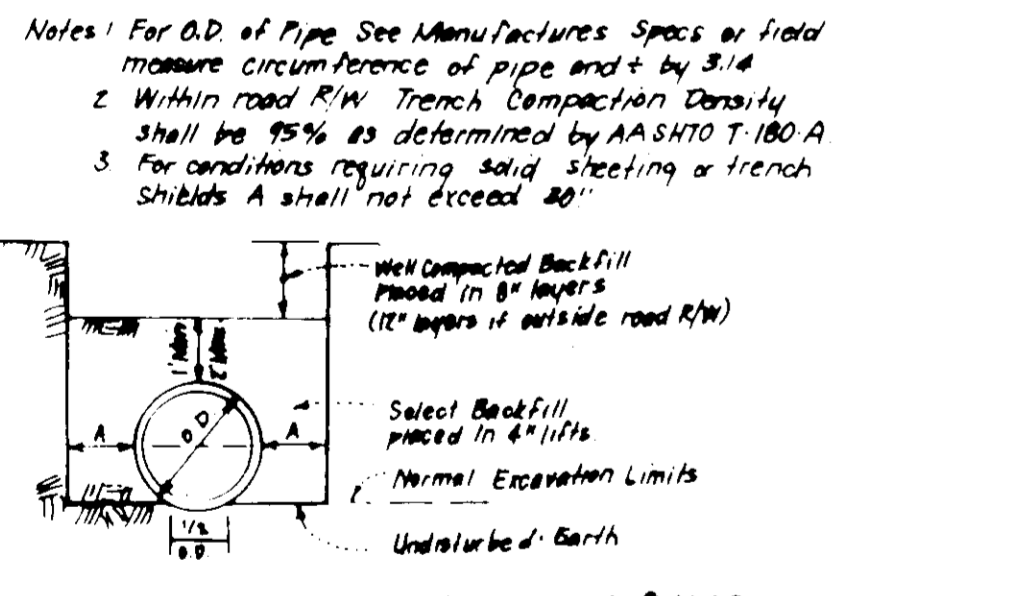 Notes 1 For O.D. of Pipe See Manufactures Specs or field
measure circumference of pipe and ÷ by 3.14
2 Within road R/W Trench Compaction Density
shall be 95% as determined by AASHTO T-180-A.
3. For conditions requiring solid sheeting or trench
Shields A shall not exceed 30"
Well Compacted Backfill
Placed in 8" layers
(12" layers if outside road R/W)
1' Min
2' Max
O.D.
A
A
Select Backfill
placed in 4" lifts.
Normal Excavation Limits
1/2
O.D.
Undisturbed Earth